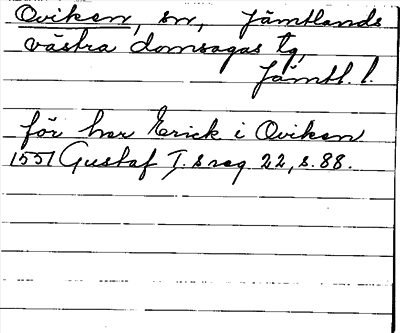 Oviken, sn, Jämtlands
västra domsagas tg,
Jämtl. l.
för her Erick i Oviken
1557 Gustaf I:s reg. 22, s. 88.